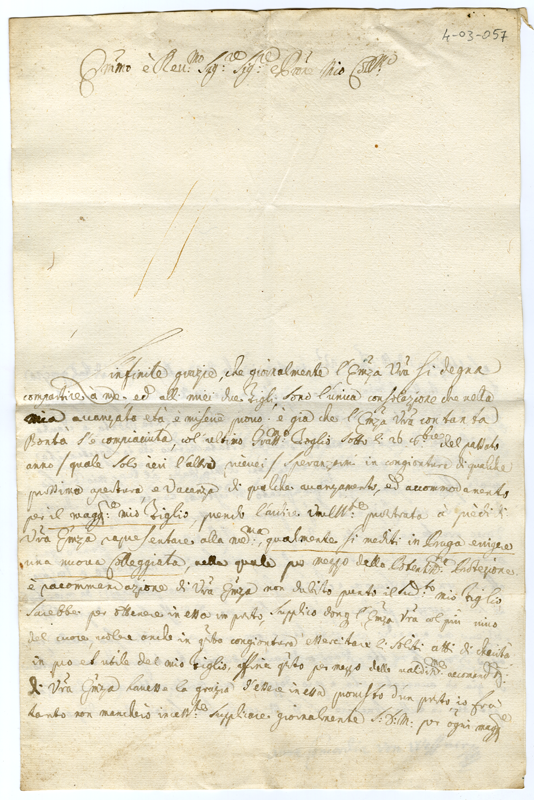 4-03-057
Em̃mo è Rev:mo Sig:re Sig:re e Pñe Mio Coll:mo
Infinite grazie, che giornalmente l'Em̃za Vr̃a si degna
compartire à me ed alli miei due Figli, sono l'unica consolazione che nella
mia avanzata età e miserie provo: e già che l'Em̃za Vr̃a con tanta
Bontà s'è compiaciuta, col ultimo Foglio sotto li 26 del passato
anno / quale solo ieri l'altro ricevei / in congiontura di qualche
prossima apertura è Vacanza di qualche avanzamento, ed accommodamento
per il mag:re mio Figlio, prendo l'ardire prostrata a piedi di
Vr̃a Em̃za rapresentare alla med:ma qualmente si mediti in Praga erigere
una nuova Colleggiata, nella quale per mezzo della Potent:ma Protezione
è raccommendazione di Vr̃a Em̃za non dubito punto il sud:to mio Figlio
sarebbe per ottenere in essa un posto, Supplico donq l'Em̃za Vr̃a col più vivo
del cuore, volere anche in q̃sta congiontura essercitare li soliti atti di charità
in pro et utile del mio Figlio, affine q̃sto per mezzo delle valid:me
di Vr̃a Em̃za havesse la grazia d'essere in essa provisto d'un posto io frà
tanto non mancherò Supplicare giornalmente S: D: M: per ogni mag:re